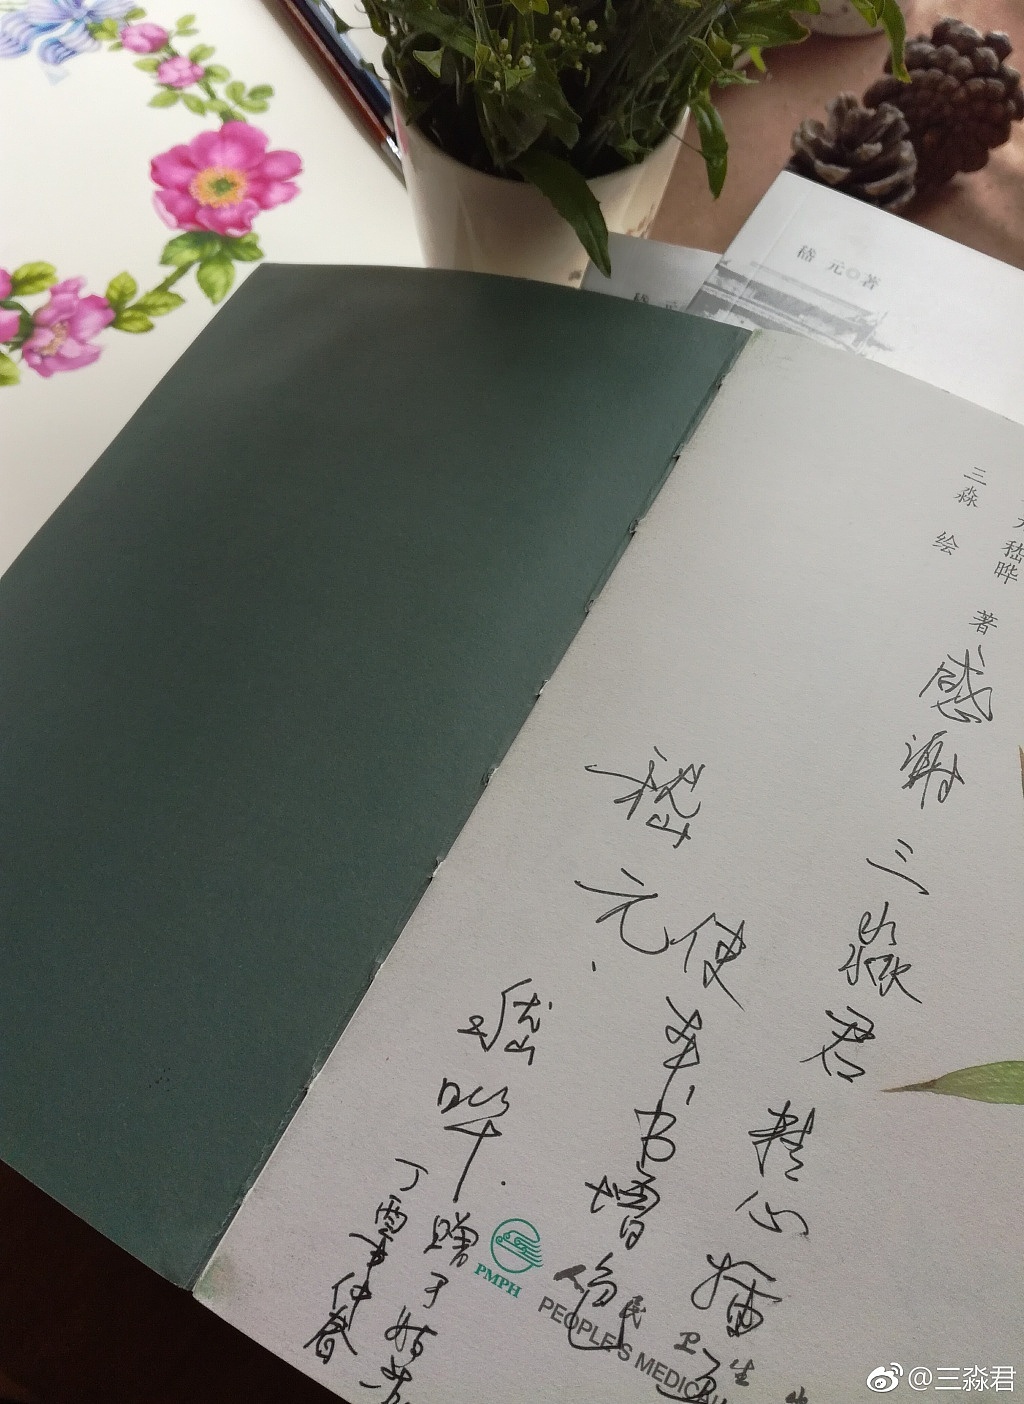 嵇元◎著
嵇元
元嵇晔 著
三淼 绘
感谢三淼君精心插
使本书增
嵇元
嵇晔
赠于姑苏
丁酉年仲春
PMPH
人民卫生
PEOPLE'S MEDICAL
@三淼君